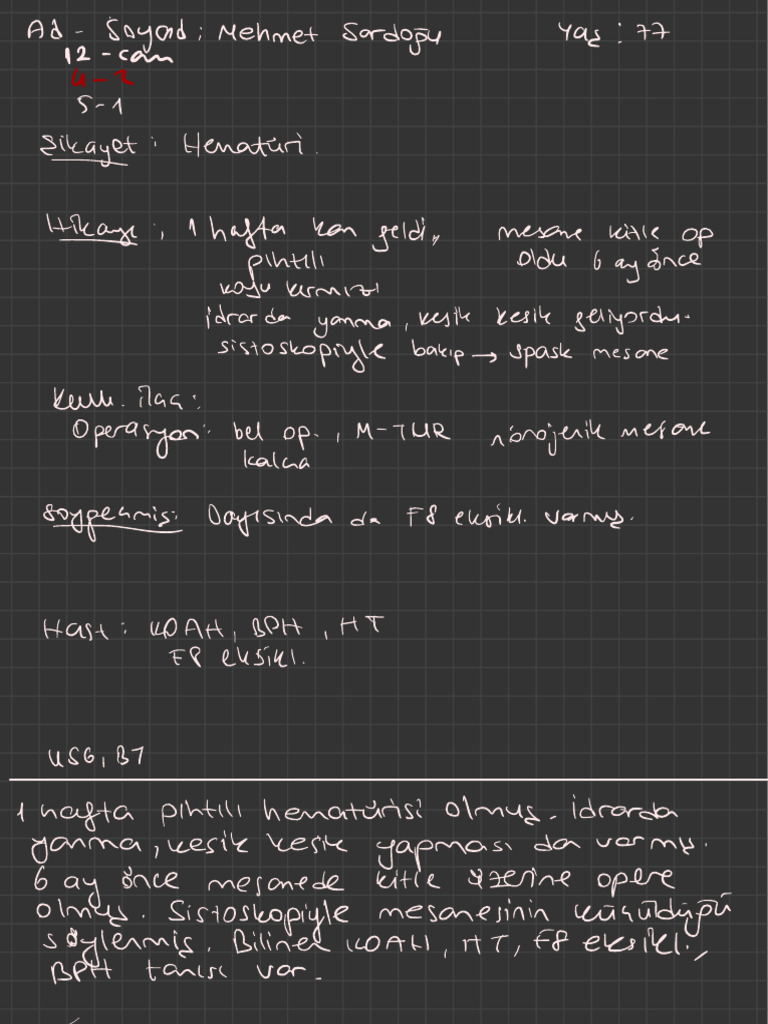 Ad - Soyad : Mehmet Sardoğu Yaş : 77
12 - cam
4 - 2
5 - 1
Şikayet : Hematüri.
Hikaye : 1 hafta kan geldi, mesane kitle op
pıhtılı oldu 6 ay önce
koyu kırmızı
idrarda yanma, kesik kesik geliyordu.
sistoskopiyle bakıp → spask mesane
Kull. ilaç :
Operasyon : bel op., M-TUR nörojenik mesane
kalça
Soygeçmiş: Dayısında da F8 eksikl. varmış.
Hast : KOAH, BPH, HT
F8 eksikl.
USG, BT
1 hafta pıhtılı hematürisi olmuş. idrarda
yanma, kesik kesik yapması da varmış.
6 ay önce mesanede kitle üzerine opere
olmuş. Sistoskopiyle mesanesinin küçüldüğü
söylenmiş. Bilinen KOAH, HT, F8 eksikl.,
BPH tanısı var.